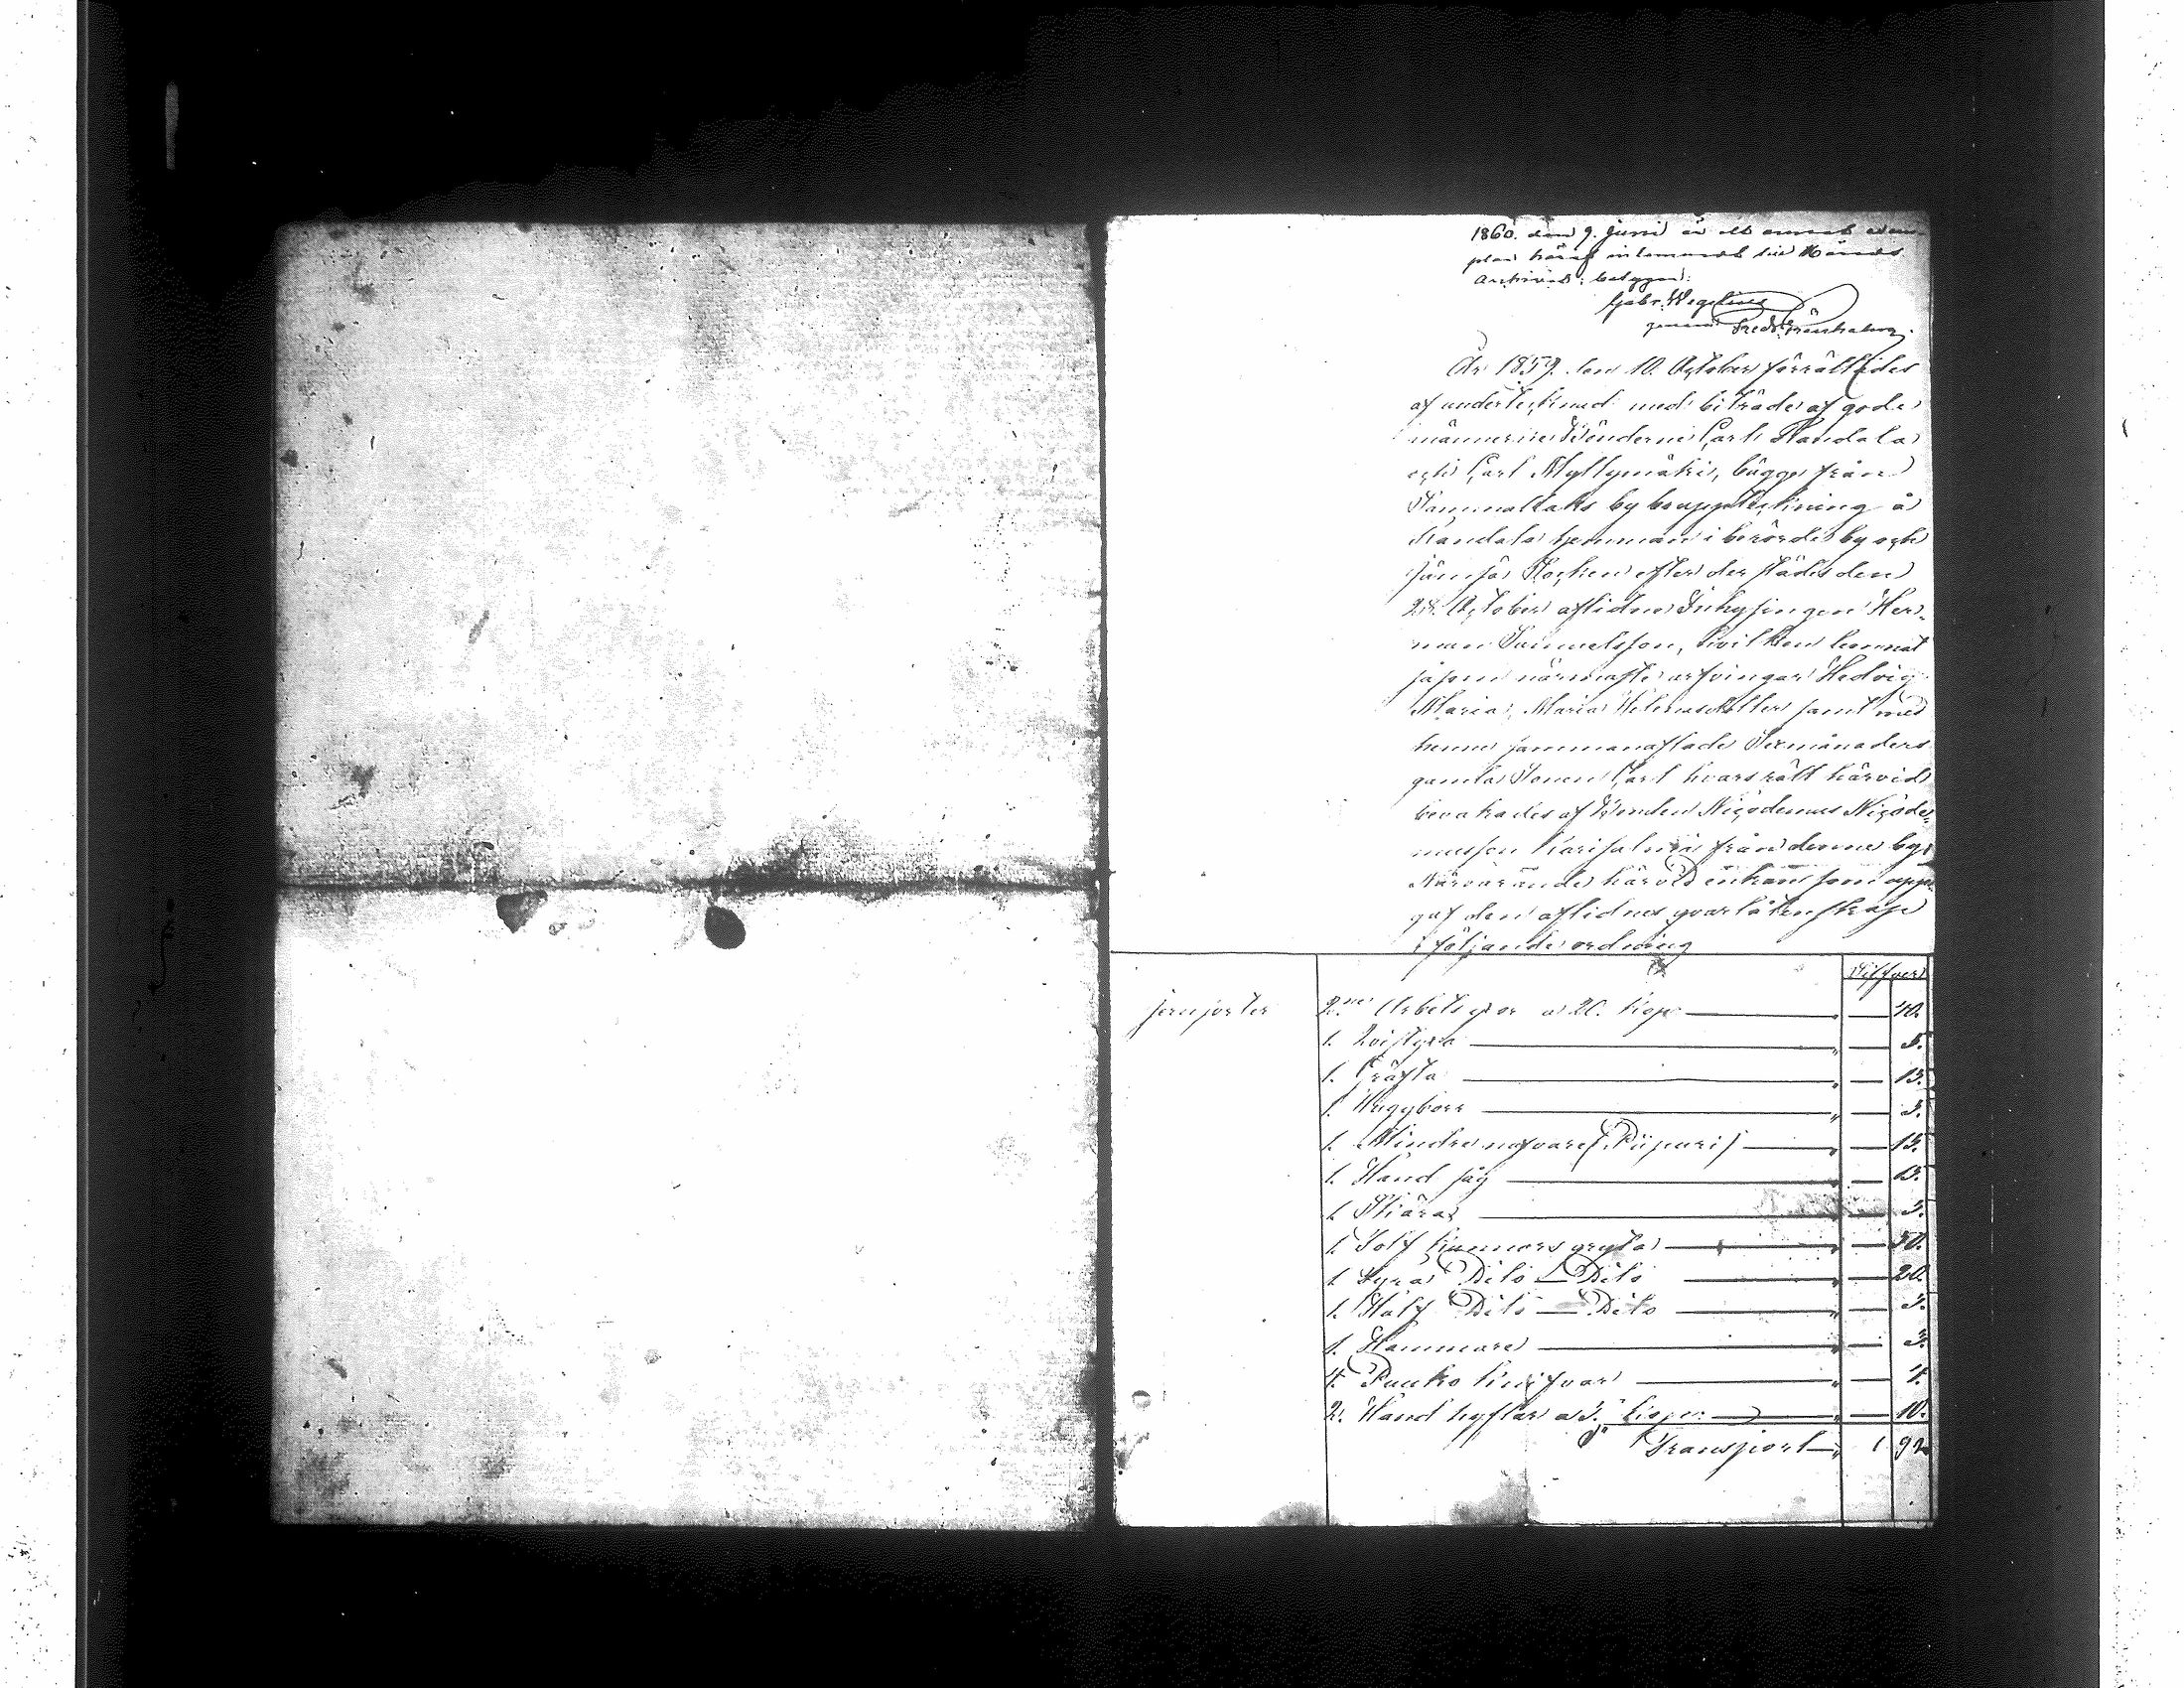 1860. den 9. Juni är ett annat exem-
plar häraf inlemnadt till Härads
Archivet; betygar:
Gabr. Wegelius
genom Fredr.
År 1859. den 10. October förrättades
af undertecknad med biträde af gode
männerne Bönderne Carl Kandala
och Carl Myllymäki, bägge från
by bouppteckning å
Kandala hemman i berörde by och
socken efter der städes den
28. October aflidne Inhysingen Her-
man Samuelsson, hvilken lemnat
såsom närmaste arfvingar Hedvig
Maria, Maria Helena samt med
henne sammanaflade Sexmånaders
gamla Sonen Carl hvars rätt härvid
bevakades af Bonden Nicodemus Nicode-
musson från denne by,
Närvarande härvid enkan som upp-
gaf den aflidnes qvarlåtenskap
i följande ordning
Silfver
Jernsorter
2ne Arbets yxor a 20. Kop 40.
1. 5.
1. 13.
1. 3.
1. Mindre nafvare (Piipuri) 15.
1. Hand såg 15.
1 Skära 3.
1. Tolf kannors gryta 50.
1 Fyra Dito — Dito 20.
1. Half Dito — Dito 3.
1. Hammare 3.
4. Puuko knifvar 4.
2. Hand hyflar a 5. Kop 10.
Transport 1 92